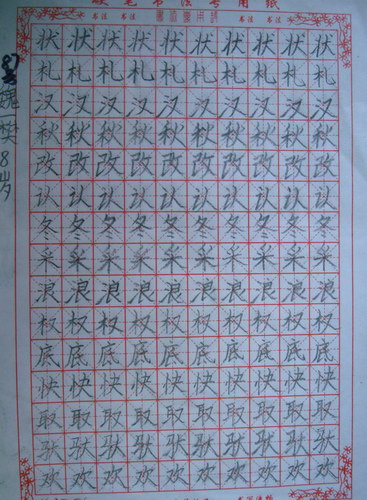 硬笔书法专用纸
书法 书法 书法 书法
状状状状状状状状状状
札札札札札札札札札札
汉汉汉汉汉汉汉汉汉汉
秋秋秋秋秋秋秋秋秋秋
改改改改改改改改改改
认认认认认认认认认认
冬冬冬冬冬冬冬冬冬冬
采采采采采采采采采采
浪浪浪浪浪浪浪浪浪浪
权权权权权权权权权权
底底底底底底底底底底
快快快快快快快快快快
取取取取取取取取取取
欢欢欢欢欢欢欢欢欢欢
魏一樊 8岁